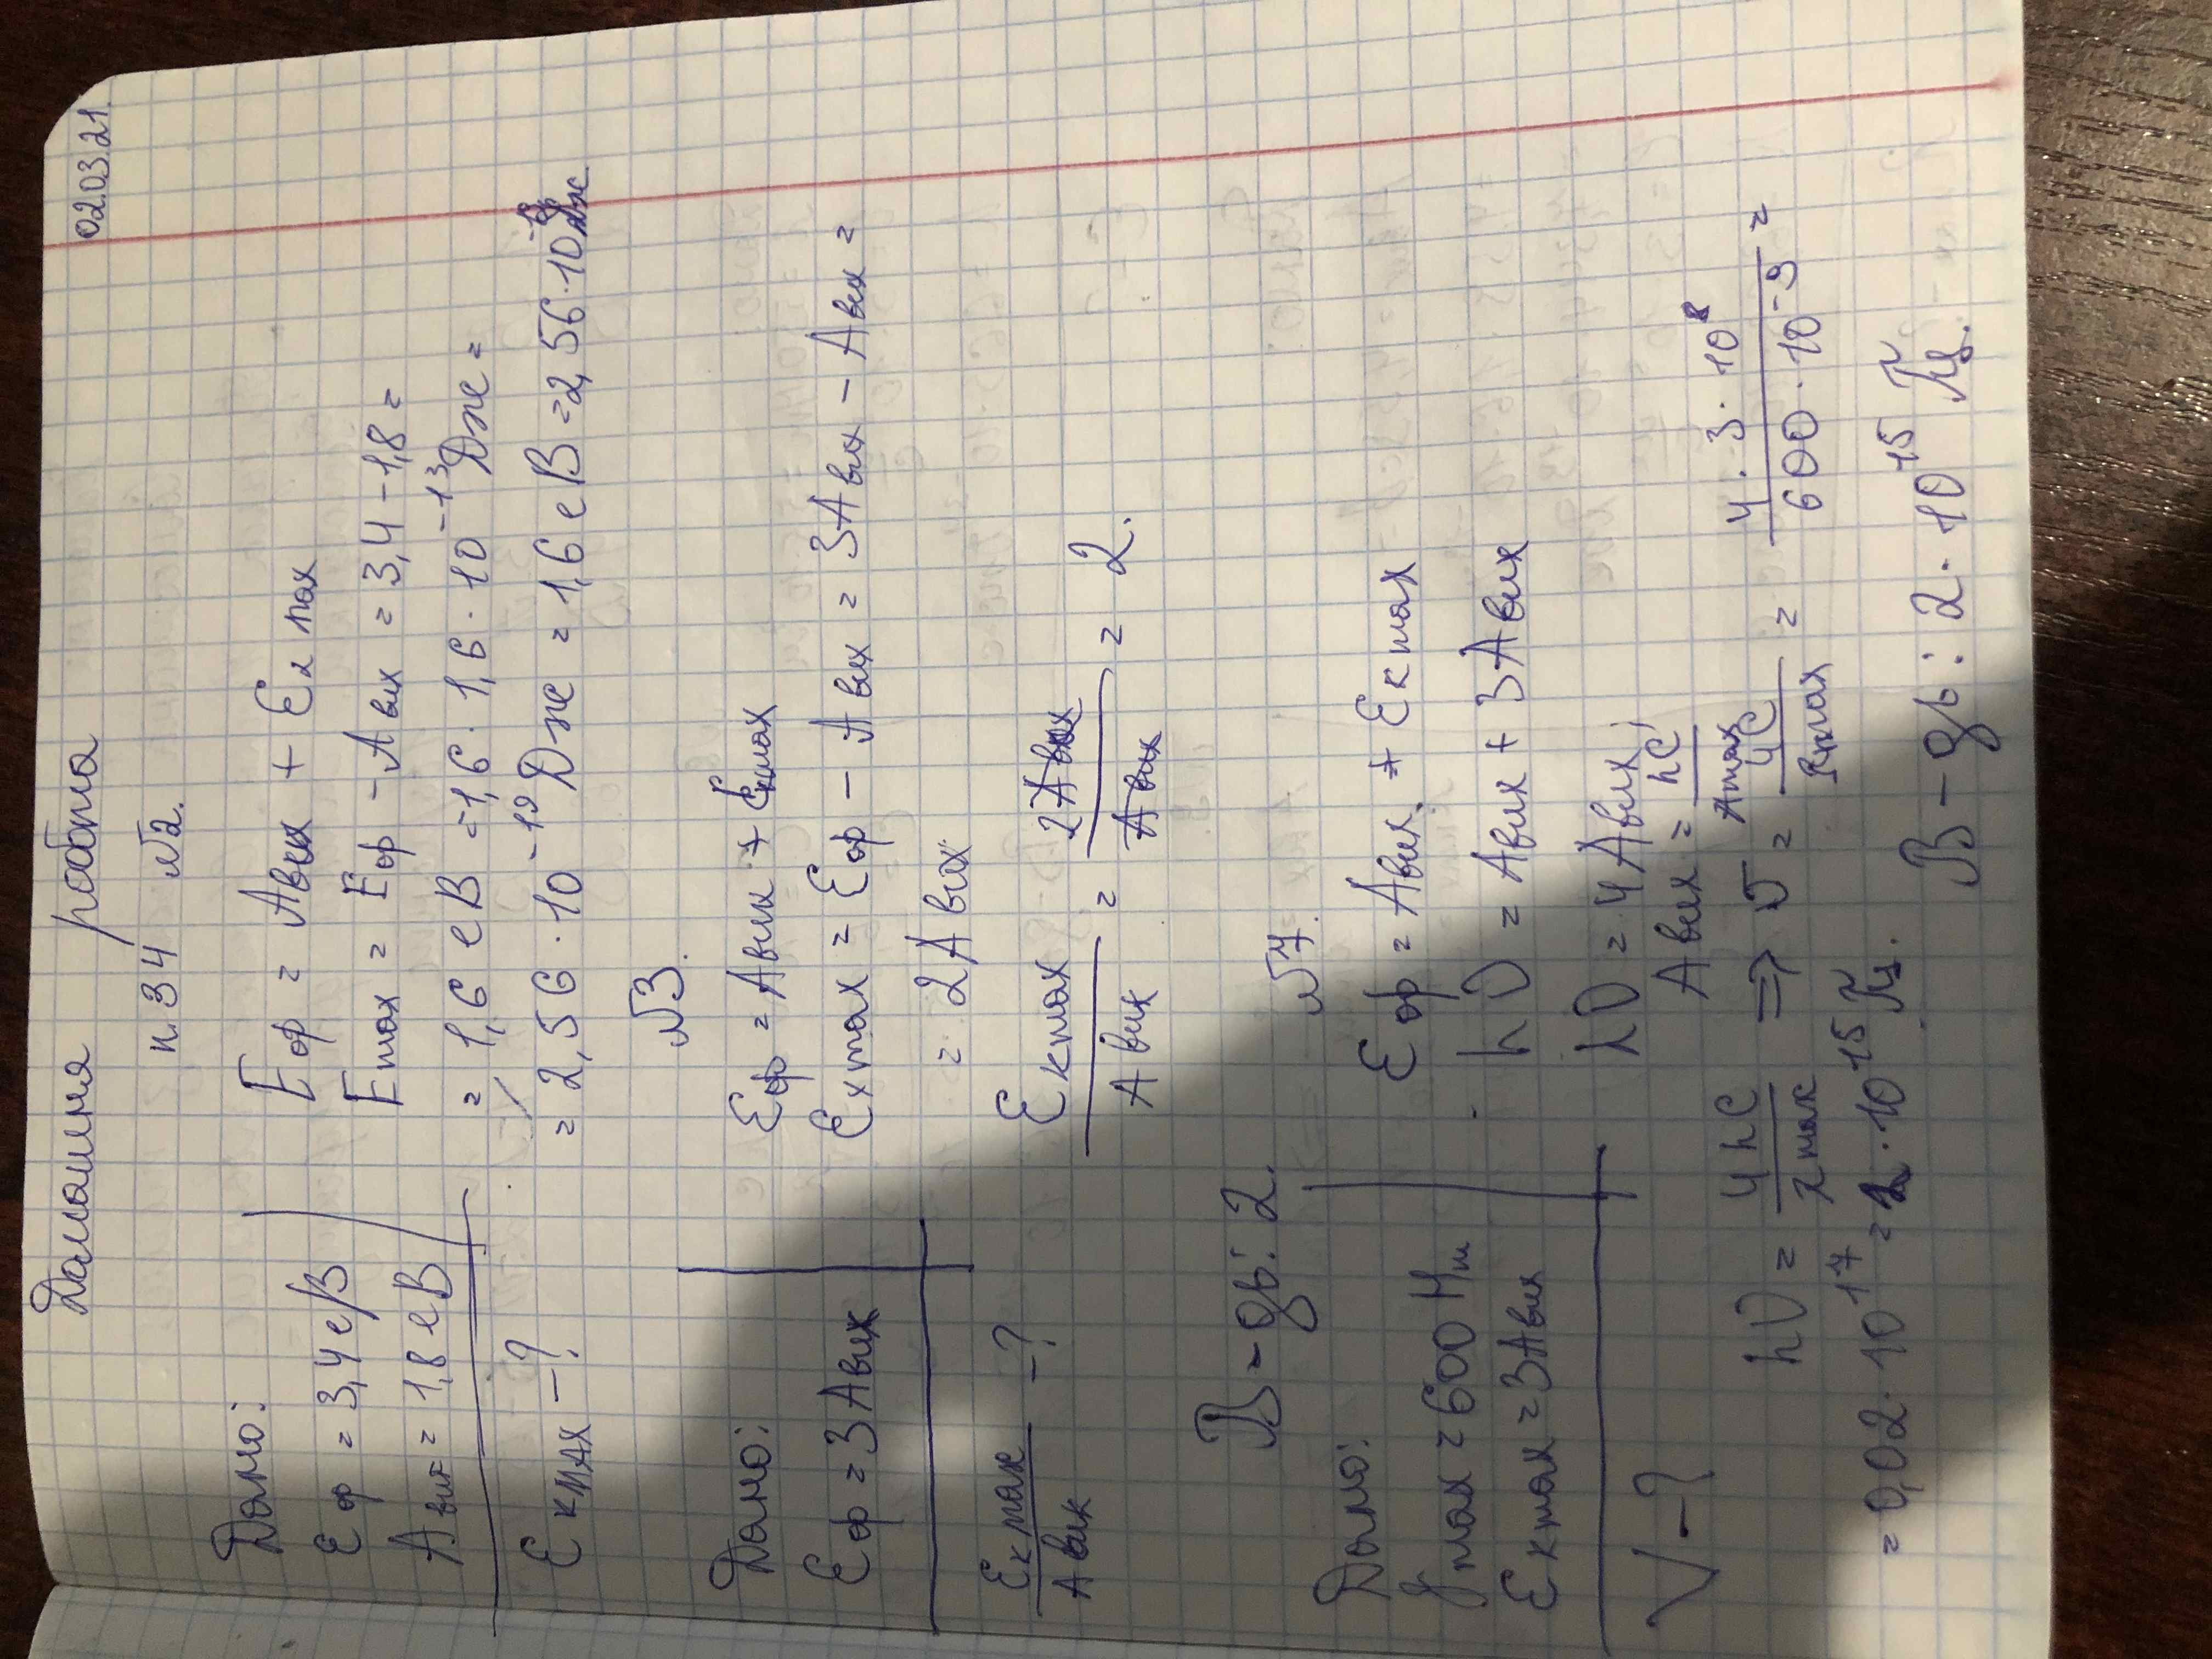 02.03.21.
Домашня робота
п.34 №2.
Дано:
Eф = 3,4 еВ
Aвих = 1,8 еВ
Eкmax – ?
Eф = Aвих + Eк max
Emax = Eф – Aвих = 3,4 – 1,8 =
= 1,6 еВ = 1,6 · 1,6 · 10⁻¹³ Дж =
= 2,56 · 10⁻¹⁹ Дж = 1,6 еВ = 2,56 · 10 Дж
№3.
Дано:
Eф = 3 Aвих
Eкmax / Aвих – ?
Eф = Aвих + Eкmax
Eкmax = Eф – Aвих = 3Aвих – Aвих =
= 2Aвих
Eкmax / Aвих = 2Aвих / Aвих = 2.
В-дь: 2.
№4.
Дано:
λmax = 600 Нм
Eкmax = 3Aвих
V – ?
Eф = Aвих + Eкmax
hν = Aвих + 3Aвих
hν = 4Aвих;
Aвих = hc / λmax;
hν = 4hc / λmax => ν = 4c / λmax = 4 · 3 · 10⁸ / 600 · 10⁻⁹ =
= 0,02 · 10¹⁷ = 2 · 10¹⁵ Гц.
В-дь: 2 · 10¹⁵ Гц.